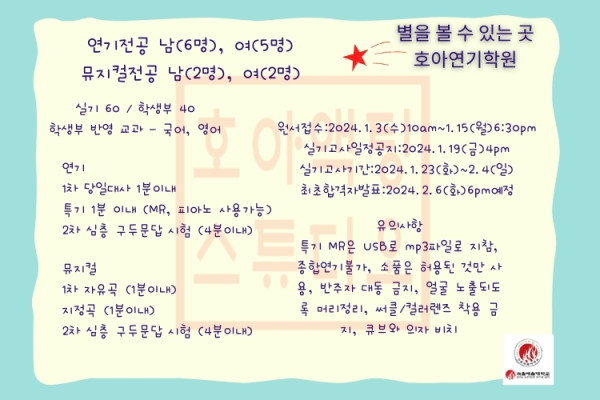 별을 볼 수 있는 곳
호아연기학원
연기전공 남(6명), 여(5명)
뮤지컬전공 남(2명), 여(2명)
실기 60 / 학생부 40
학생부 반영 교과 - 국어, 영어
연기
1차 당일대사 1분이내
특기 1분 이내 (MR, 피아노 사용가능)
2차 심층 구두문답 시험 (4분이내)
뮤지컬
1차 자유곡 (1분이내)
지정곡 (1분이내)
2차 심층 구두문답 시험 (4분이내)
원서접수:2024.1.3(수)10am~1.15(월)6:30pm
실기고사일정공지:2024.1.19(금)4pm
실기고사기간:2024.1.23(화)~2.4(일)
최초합격자발표:2024.2.6(화)6pm예정
유의사항
특기 MR은 USB로 mp3파일로 지참,
종합연기불가, 소품은 허용된 것만 사
용, 반주자 대동 금지, 얼굴 노출되도
록 머리정리, 써클/컬러렌즈 착용 금
지, 큐브와 의자 비치
호아액팅
스튜디오
서울예술대학교